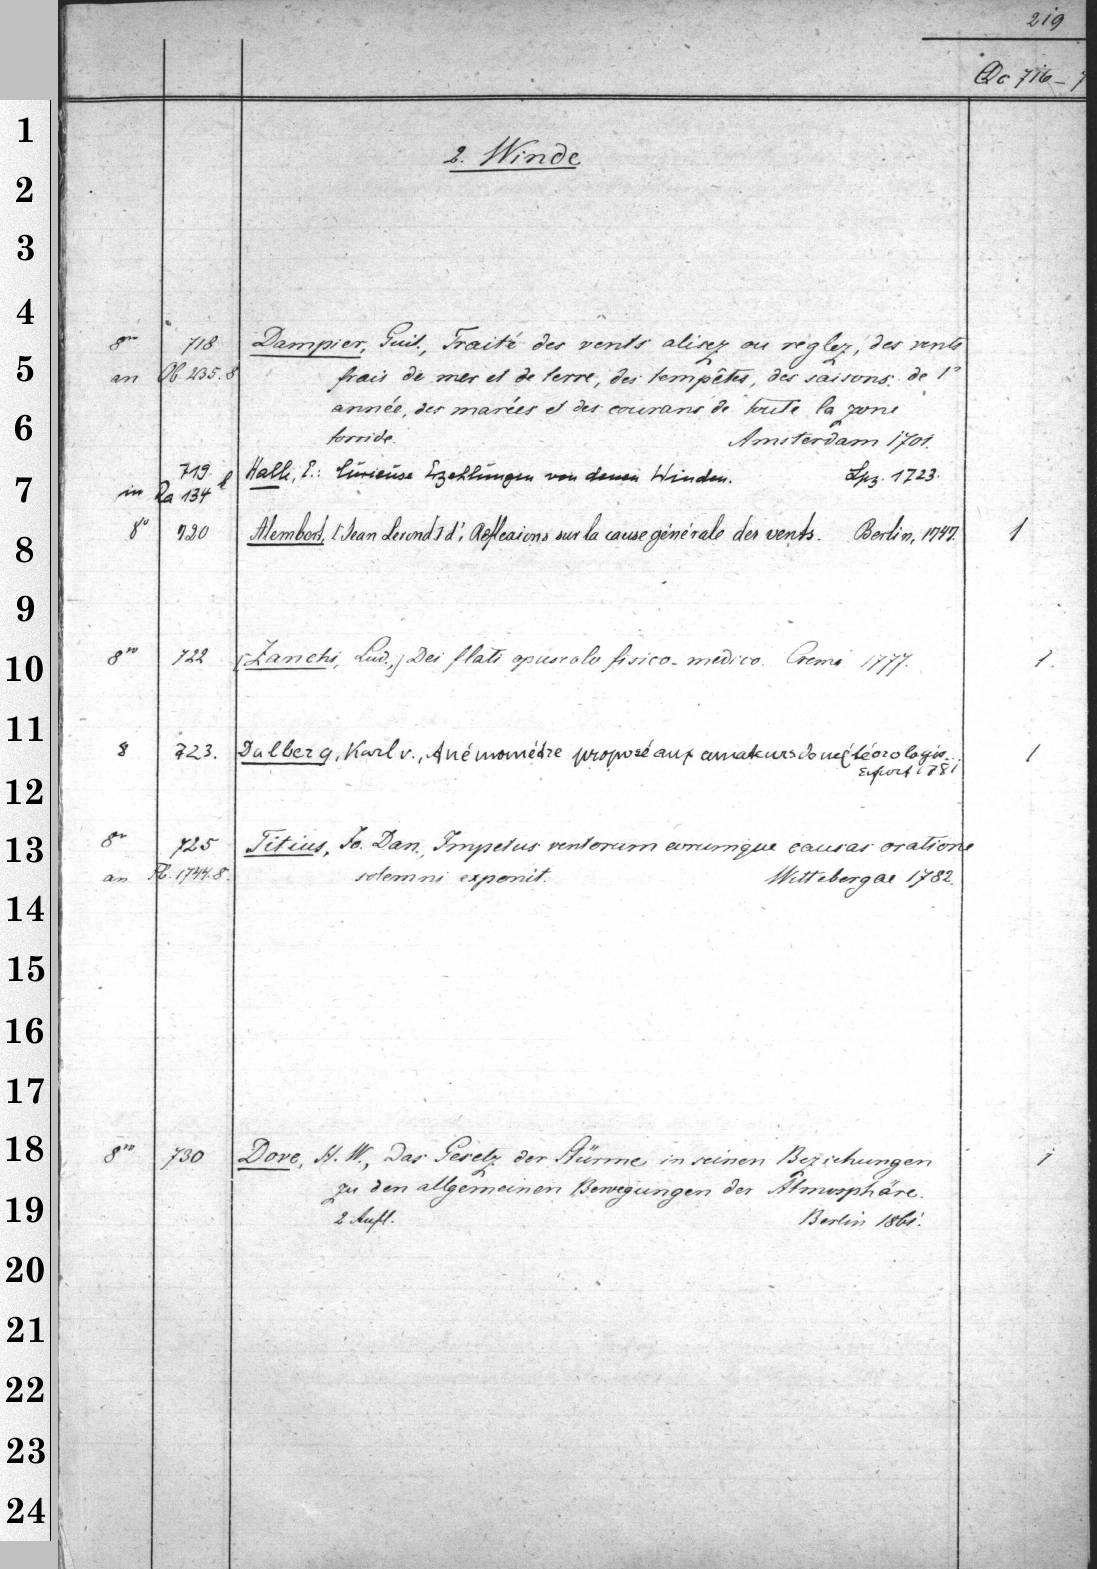 219
Qc 716 - 7
1
2. Winde
2
3
4
8vo 718 Dampier, Guil., Traité des vents alisez ou réglez, des vents
5
an Ob. 235. 8 frais de mer et de terre, des tempêtes, des saisons de l'
année, des marées et des courans de toute la zone
6
torride. Amsterdam 1701.
7
719 Halle, E.: Curieuse Erzehlungen von denen Winden. Lpz. 1723.
in Ra 134
8o 720 Alembert, [Jean Lerond] d', Réflexions sur la cause générale des vents. Berlin, 1747. 1
8
9
8vo 722 [Zanchi, Lud.,] Dei flati opuscolo fisico-medico. 1777. 1.
10
11
8 723. Dalberg, Karl v., Anémomètre proposé aux amateurs de météorologie... 1
Erfurt 1781
12
8vo 725 Titius, Jo. Dan., Impetus ventorum eorumque causas oratione
13
an 1744. 8. solemni exponit. Wittebergae 1782.
14
15
16
17
18
8vo 730 Dove, H. W., Das Gesetz der Stürme in seinen Beziehungen 1
zu den allgemeinen Bewegungen der Atmosphäre.
19
2 Aufl. Berlin 1861.
20
21
22
23
24